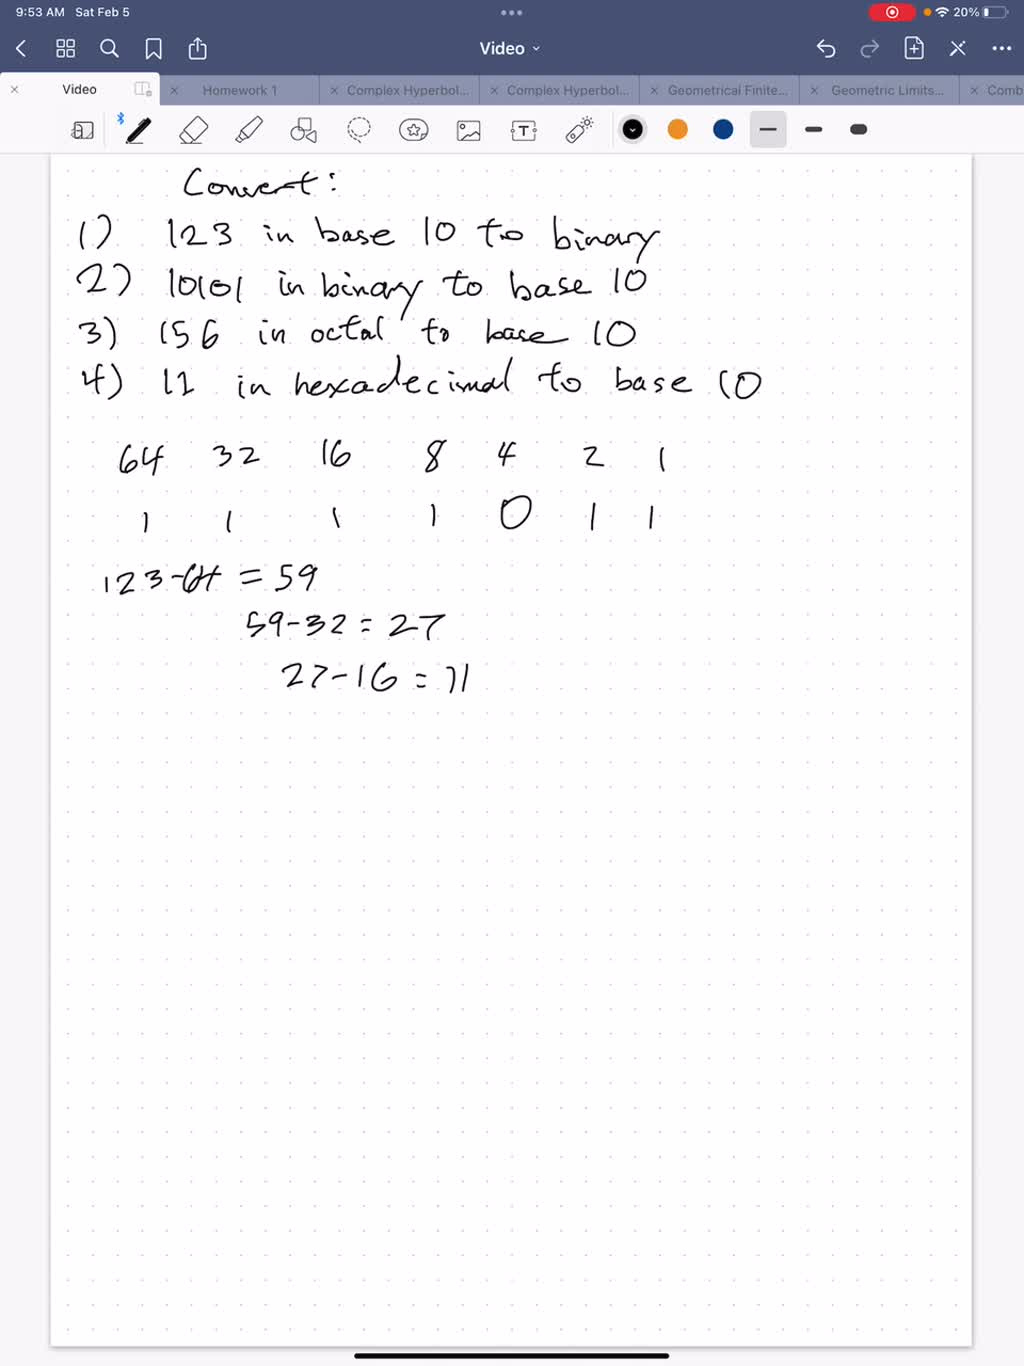 9:53 AM Sat Feb 5
20%
Video
Video
Homework 1
Complex Hyperbol...
Complex Hyperbol...
Geometrical Finite...
Geometric Limits...
Comb
T
Convert:
1) 123 in base 10 to binary
2) 10101 in binary to base 10
3) 156 in octal to base 10
4) 11 in hexadecimal to base 10
64 32 16 8 4 2 1
1 1 1 1 0 1 1
123-64 = 59
59-32 = 27
27-16 = 11